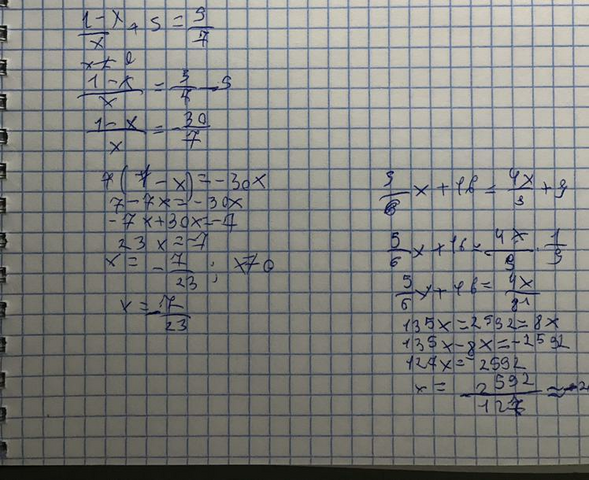 (1-x)/x + 5 = 5/7
x ≠ 0
(1-x)/x = 5/7 - 5
(1-x)/x = -30/7
7(1-x) = -30x
7-7x=-30x
-7x+30x=-7
23x=-7
x = -7/23 ; x≠0
x = -7/23
5/6 x + 16 = 4x/9 ÷ 9
5/6 x + 16 = 4x/9 · 1/9
5/6 x + 16 = 4x/81
135x = 2592 = 8x
135x-8x=-2592
127x= 2592
x = -2592/127 ≈